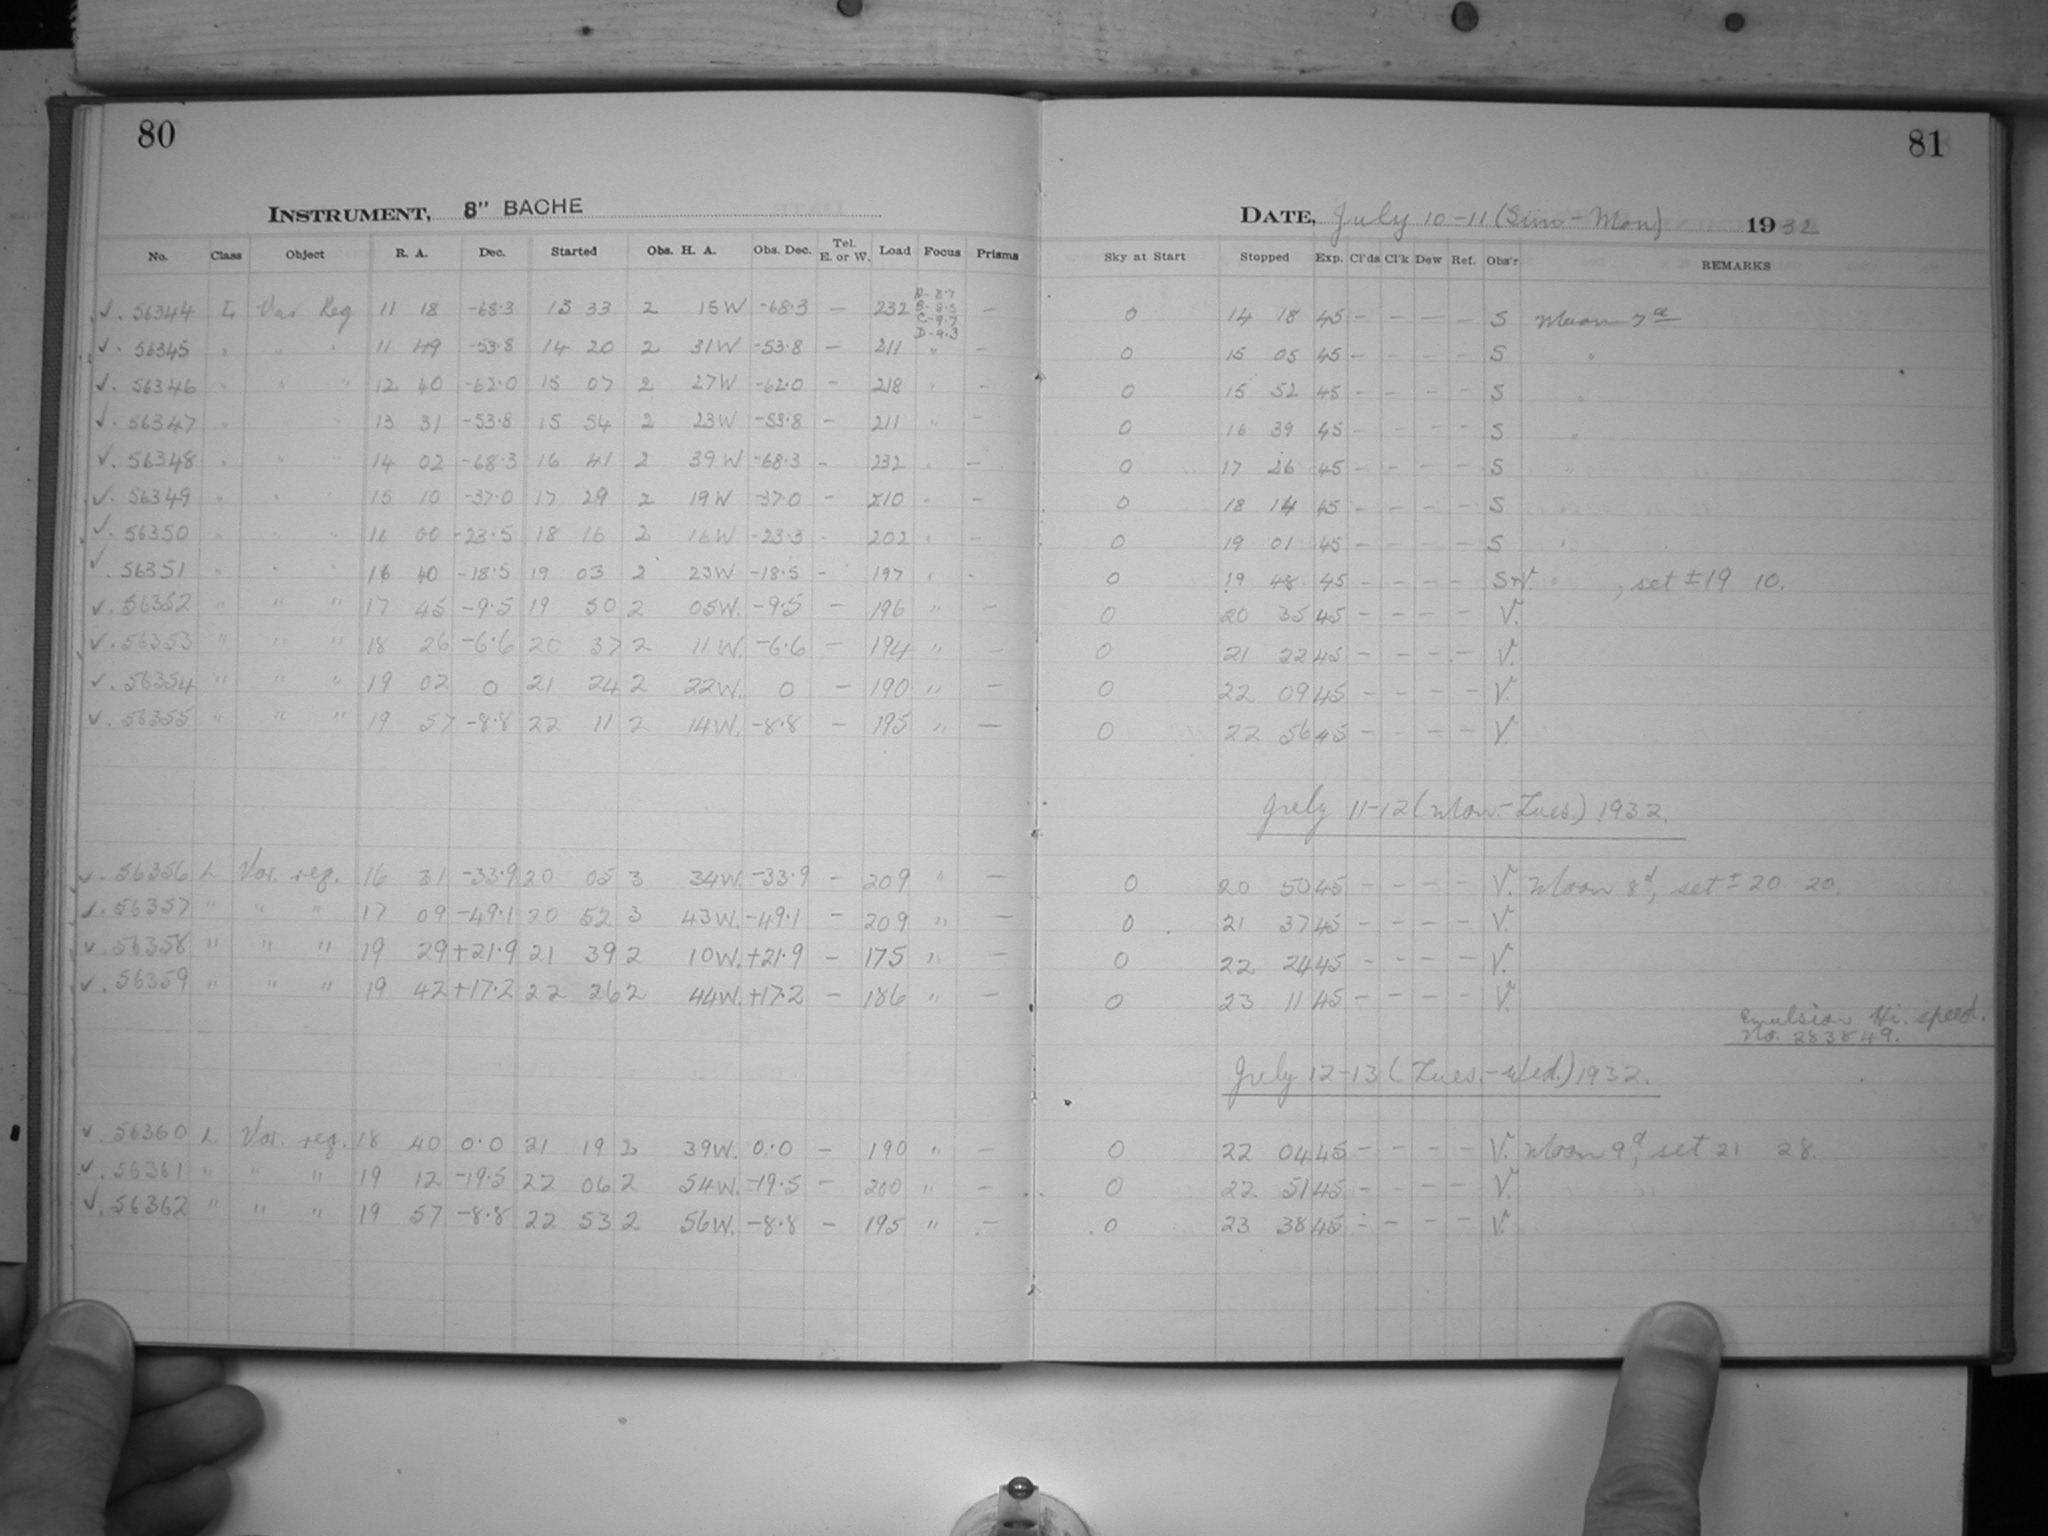 80
INSTRUMENT, 8" BACHE
No. Class Object R. A. Dec. Started Obs. H. A. Obs. Dec. Tel. E. or W. Load Focus Prisms
✓. 56344 L Var Reg 11 18 -68.3 13 33 2 15W -68.3 — 232 —
✓. 56345 " " " 11 49 -53.8 14 20 2 31W -53.8 — 211 " —
✓. 56346 " " " 12 40 -62.0 15 07 2 27W -62.0 - 218 " -
✓. 56347 " " " 13 31 -53.8 15 54 2 23W -53.8 - 211 " -
✓. 56348 " " " 14 02 -68.3 16 41 2 39W -68.3 - 232 " -
✓. 56349 " " " 15 10 -37.0 17 29 2 19W -37.0 - 210 " -
✓. 56350 " " " 16 00 -23.5 18 16 2 16W -23.3 - 202 " -
✓. 56351 " " " 16 40 -18.5 19 03 2 23W -18.5 - 197 " -
✓. 56352 " " " 17 45 -9.5 19 50 2 05W. -9.5 — 196 " —
✓. 56353 " " " 18 26 -6.6 20 37 2 11W. -6.6 — 194 " —
✓. 56354 " " " 19 02 0 21 24 2 22W. 0 — 190 " —
✓. 56355 " " " 19 57 -8.8 22 11 2 14W. -8.8 — 195 " —
✓. 56356 L Var. reg. 16 31 -33.9 20 05 3 34W. -33.9 - 209 " —
✓. 56357 " " " 17 09 -49.1 20 52 3 43W. -49.1 - 209 " —
✓. 56358 " " " 19 29 +21.9 21 39 2 10W. +21.9 - 175 " —
✓. 56359 " " " 19 42 +17.2 22 26 2 44W. +17.2 - 186 " —
✓. 56360 L Var. reg. 18 40 0.0 21 19 2 39W. 0.0 — 190 " —
✓. 56361 " " " 19 12 -19.5 22 06 2 54W. -19.5 - 200 " —
✓. 56362 " " " 19 57 -8.8 22 53 2 56W. -8.8 — 195 " —
81
DATE, July 10-11 (Sun-Mon) 1932
Sky at Start Stopped Exp. Cl'ds Cl'k Dew Ref. Obs'r REMARKS
0 14 18 45 - - - - S Moon 7d
0 15 05 45 - - - - S "
0 15 52 45 - - - - S "
0 16 39 45 - - - - S "
0 17 26 45 - - - - S "
0 18 14 45 - - - - S
0 19 01 45 - - - - S "
0 19 48 45 - - - - S+V. " , set ±19 10.
0 20 35 45 - - - - V.
0 21 22 45 - - - - V.
0 22 09 45 - - - - V.
0 22 56 45 - - - - V.
July 11-12 (Mon.-Tues.) 1932.
0 20 50 45 - - - - V. Moon 8d, set ± 20 20.
0 21 37 45 - - - - V.
0 22 24 45 - - - - V.
0 23 11 45 - - - - V.
Emulsion Hi. speed.
No. 283849.
July 12-13 (Tues.-Wed.) 1932.
0 22 04 45 - - - - V. Moon 9d, set 21 28.
0 22 51 45 - - - - V.
0 23 38 45 - - - - V.